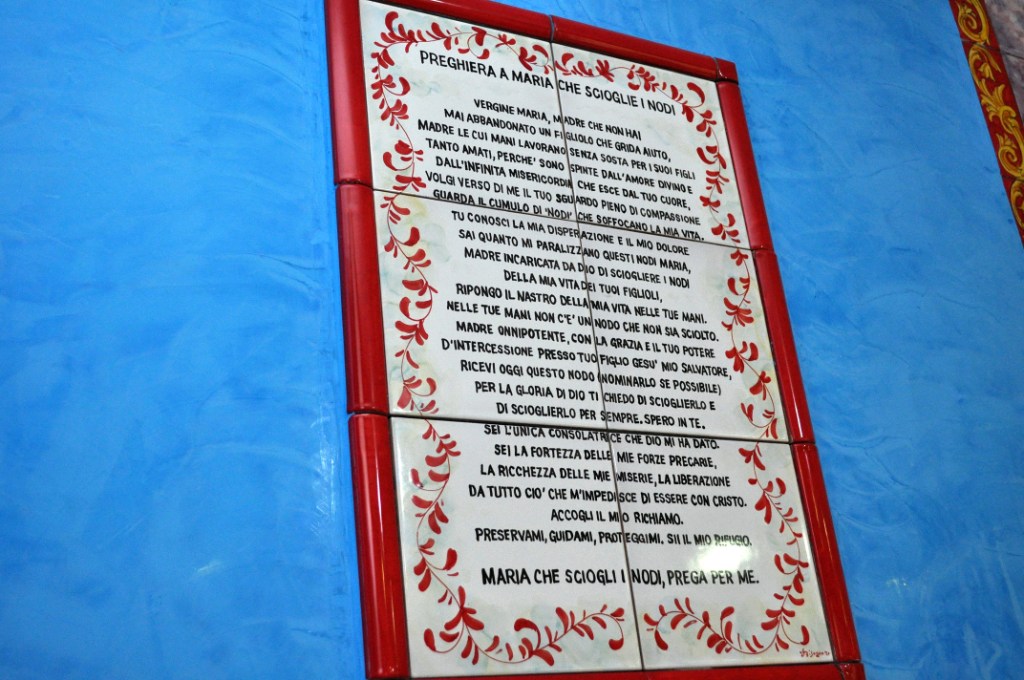 PREGHIERA A MARIA CHE SCIOGLIE I NODI
VERGINE MARIA, MADRE CHE NON HAI
MAI ABBANDONATO UN FIGLIOLO CHE GRIDA AIUTO,
MADRE LE CUI MANI LAVORANO SENZA SOSTA PER I SUOI FIGLI
TANTO AMATI, PERCHE' SONO SPINTE DALL'AMORE DIVINO E
DALL'INFINITA MISERICORDIA CHE ESCE DAL TUO CUORE,
VOLGI VERSO DI ME IL TUO SGUARDO PIENO DI COMPASSIONE
GUARDA IL CUMULO DI 'NODI' CHE SOFFOCANO LA MIA VITA.
TU CONOSCI LA MIA DISPERAZIONE E IL MIO DOLORE
SAI QUANTO MI PARALIZZANO QUESTI NODI MARIA,
MADRE INCARICATA DA DIO DI SCIOGLIERE I NODI
DELLA MIA VITA DEI TUOI FIGLIOLI,
RIPONGO IL NASTRO DELLA MIA VITA NELLE TUE MANI.
NELLE TUE MANI NON C'E' UN NODO CHE NON SIA SCIOLTO.
MADRE ONNIPOTENTE, CON LA GRAZIA E IL TUO POTERE
D'INTERCESSIONE PRESSO TUO FIGLIO GESU' MIO SALVATORE,
RICEVI OGGI QUESTO NODO (NOMINARLO SE POSSIBILE)
PER LA GLORIA DI DIO TI CHIEDO DI SCIOGLIERLO E
DI SCIOGLIERLO PER SEMPRE. SPERO IN TE.
SEI L'UNICA CONSOLATRICE CHE DIO MI HA DATO.
SEI LA FORTEZZA DELLE MIE FORZE PRECARIE,
LA RICCHEZZA DELLE MIE MISERIE, LA LIBERAZIONE
DA TUTTO CIO' CHE M'IMPEDISCE DI ESSERE CON CRISTO.
ACCOGLI IL MIO RICHIAMO.
PRESERVAMI, GUIDAMI, PROTEGGIMI. SII IL MIO RIFUGIO.
MARIA CHE SCIOGLI I NODI, PREGA PER ME.